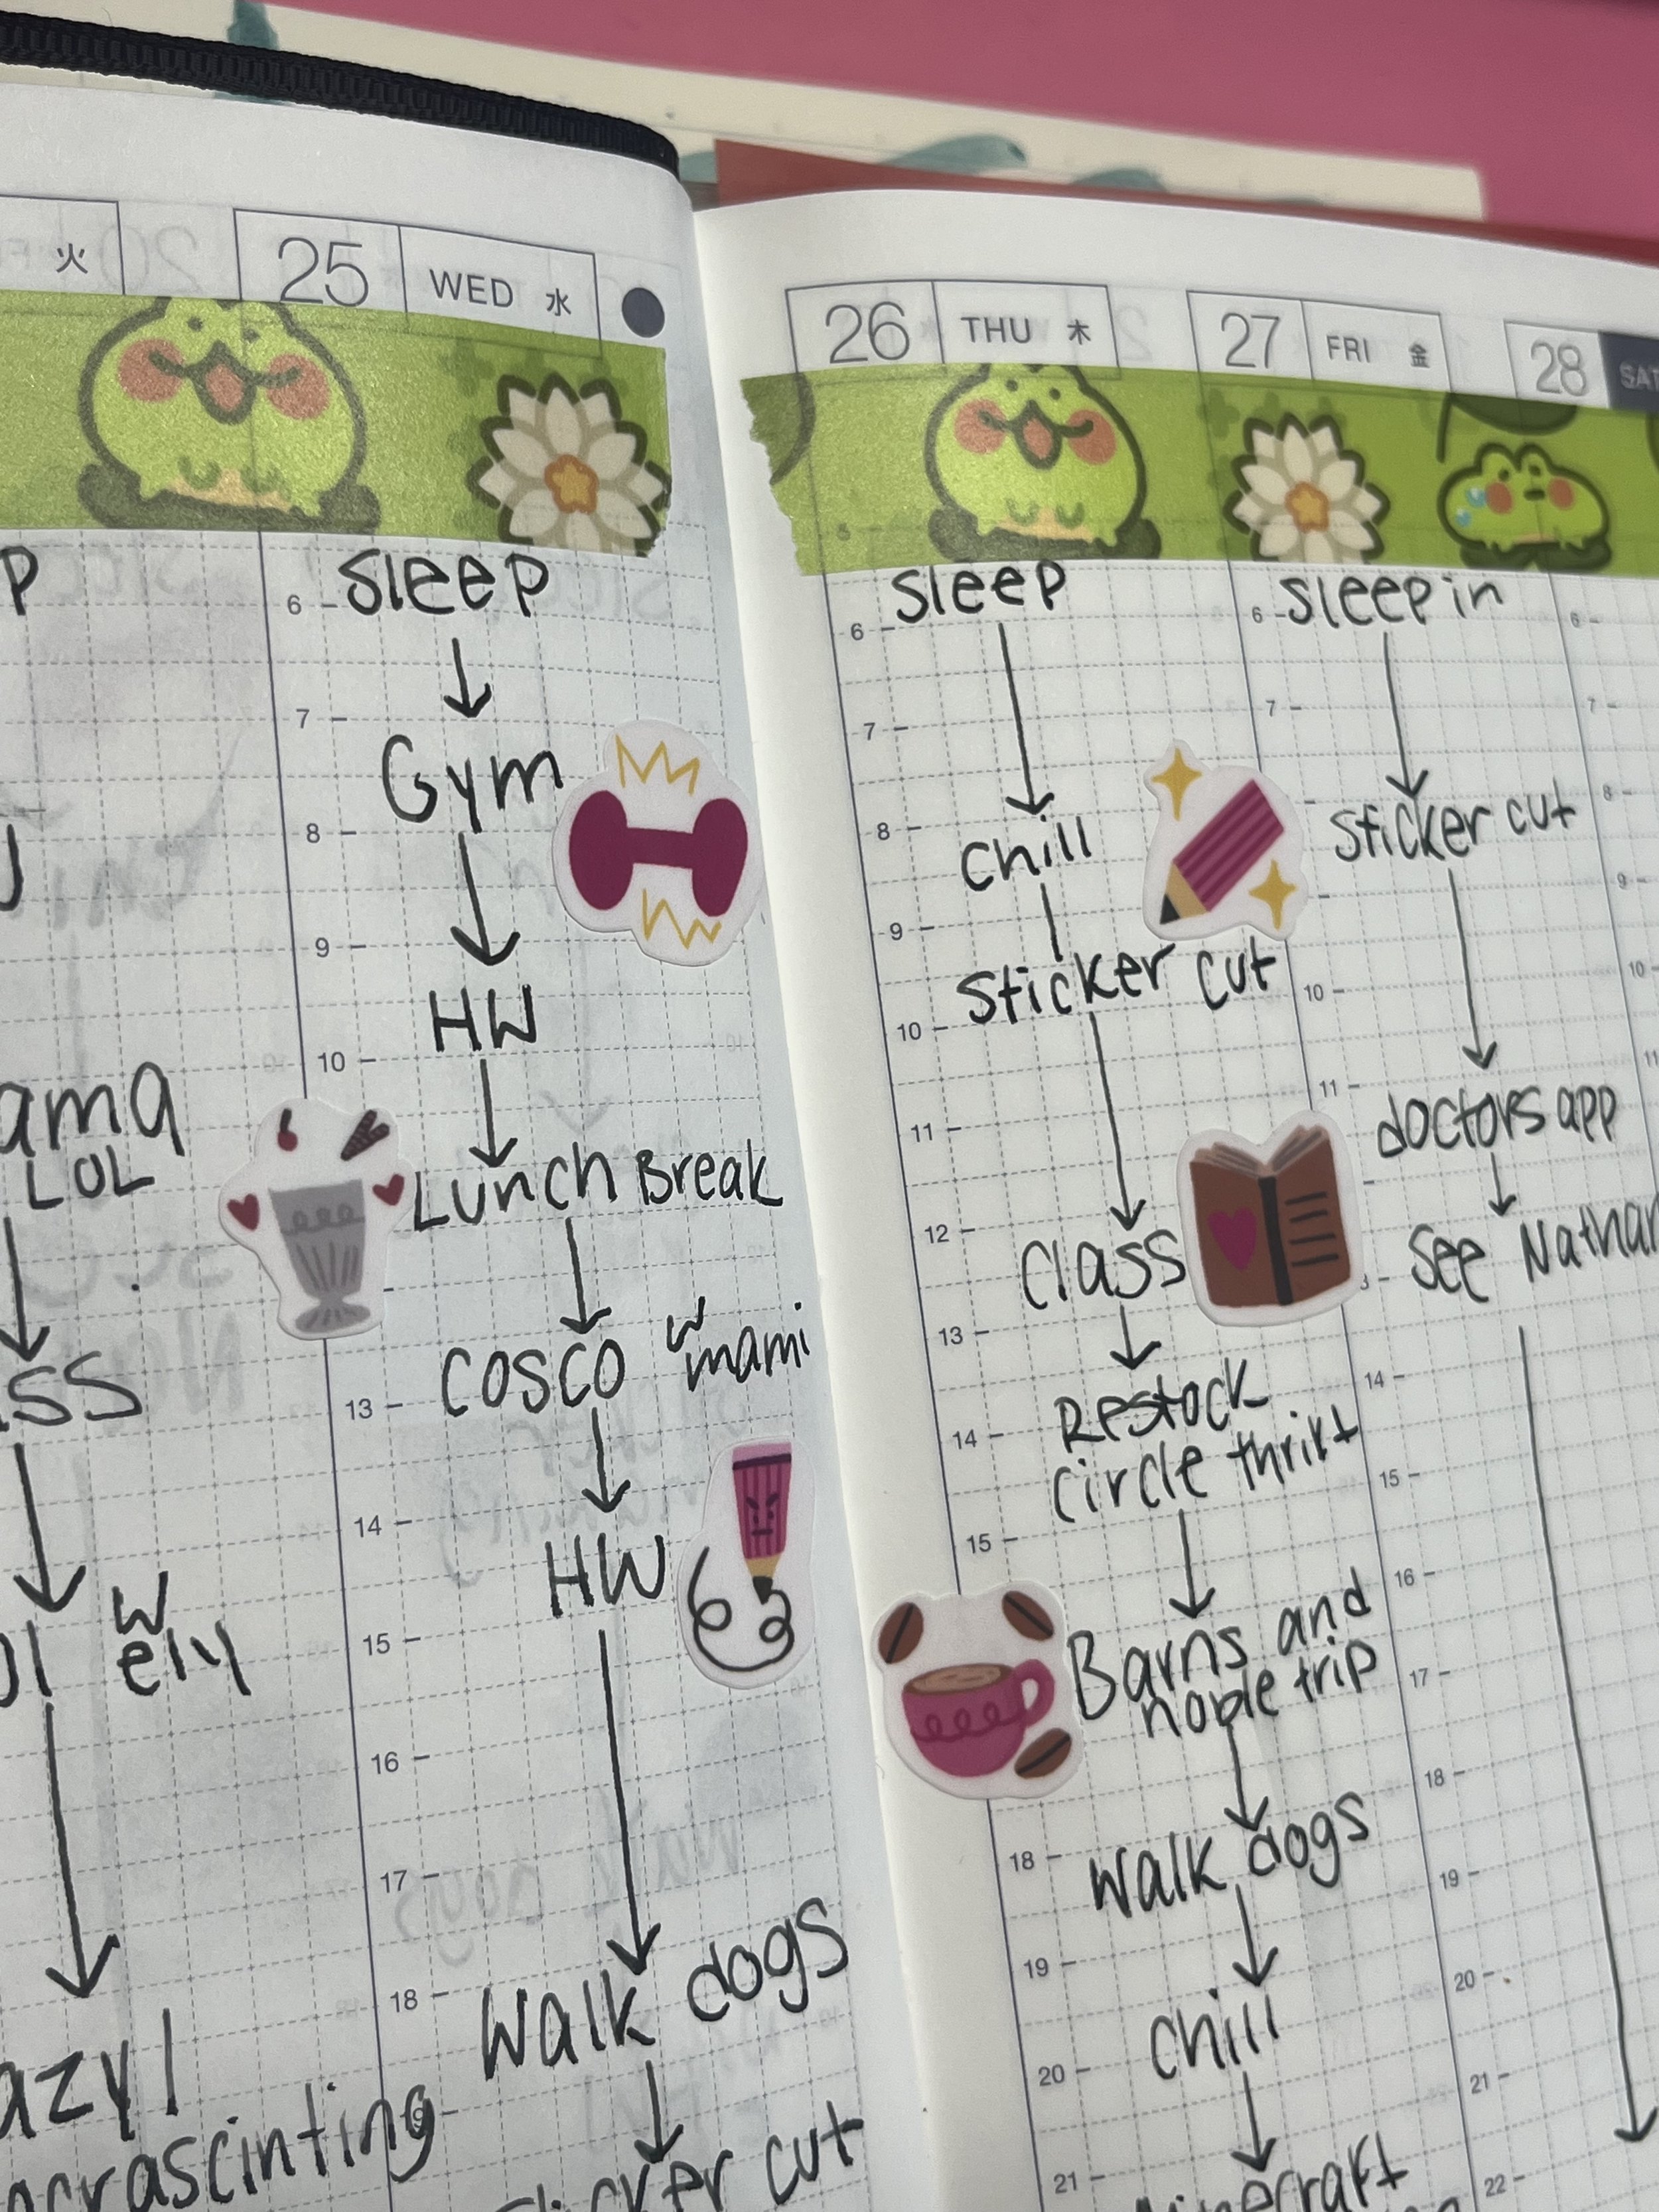 火
P
LOL
ely
25 WED 水
6 Sleep
7
Gym
8
9
HW
10
Lunch Break
COSCO w mami
13
14
HW
15
16
17
18 Walk dogs
sticker cut
26 THU 木
5
6 Sleep
7
8
chill
9
Sticker cut
10
11
12
Class
13
Restock
14
circle thrift
15
Barns and
noble trip
18
Walk dogs
19
chill
20
21
Minecraft
27 FRI 金
6 Sleep in
7
Sticker cut
10
11
doctors app
See
14
15
16
17
18
19
20
21
22
28 SAT
6
7
8
9
10
11